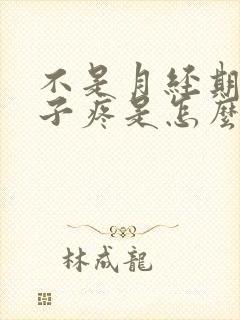 不是月经期
子疼是怎麼
林成龍